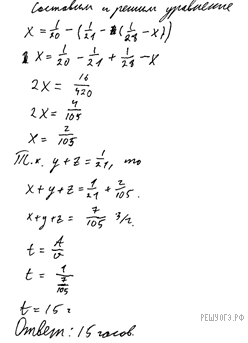 Составим и решим уравнение
x = 1/20 − (1/21 − (1/28 − x))
x = 1/20 − 1/21 + 1/28 − x
2x = 16/420
2x = 4/105
x = 2/105
Т.к. y + z = 1/21, то
x + y + z = 1/21 + 2/105.
x + y + z = 7/105 з/ч.
t = A/v
t = 1/(7/105)
t = 15 ч
Ответ: 15 часов.
РЕШУОГЭ.РФ